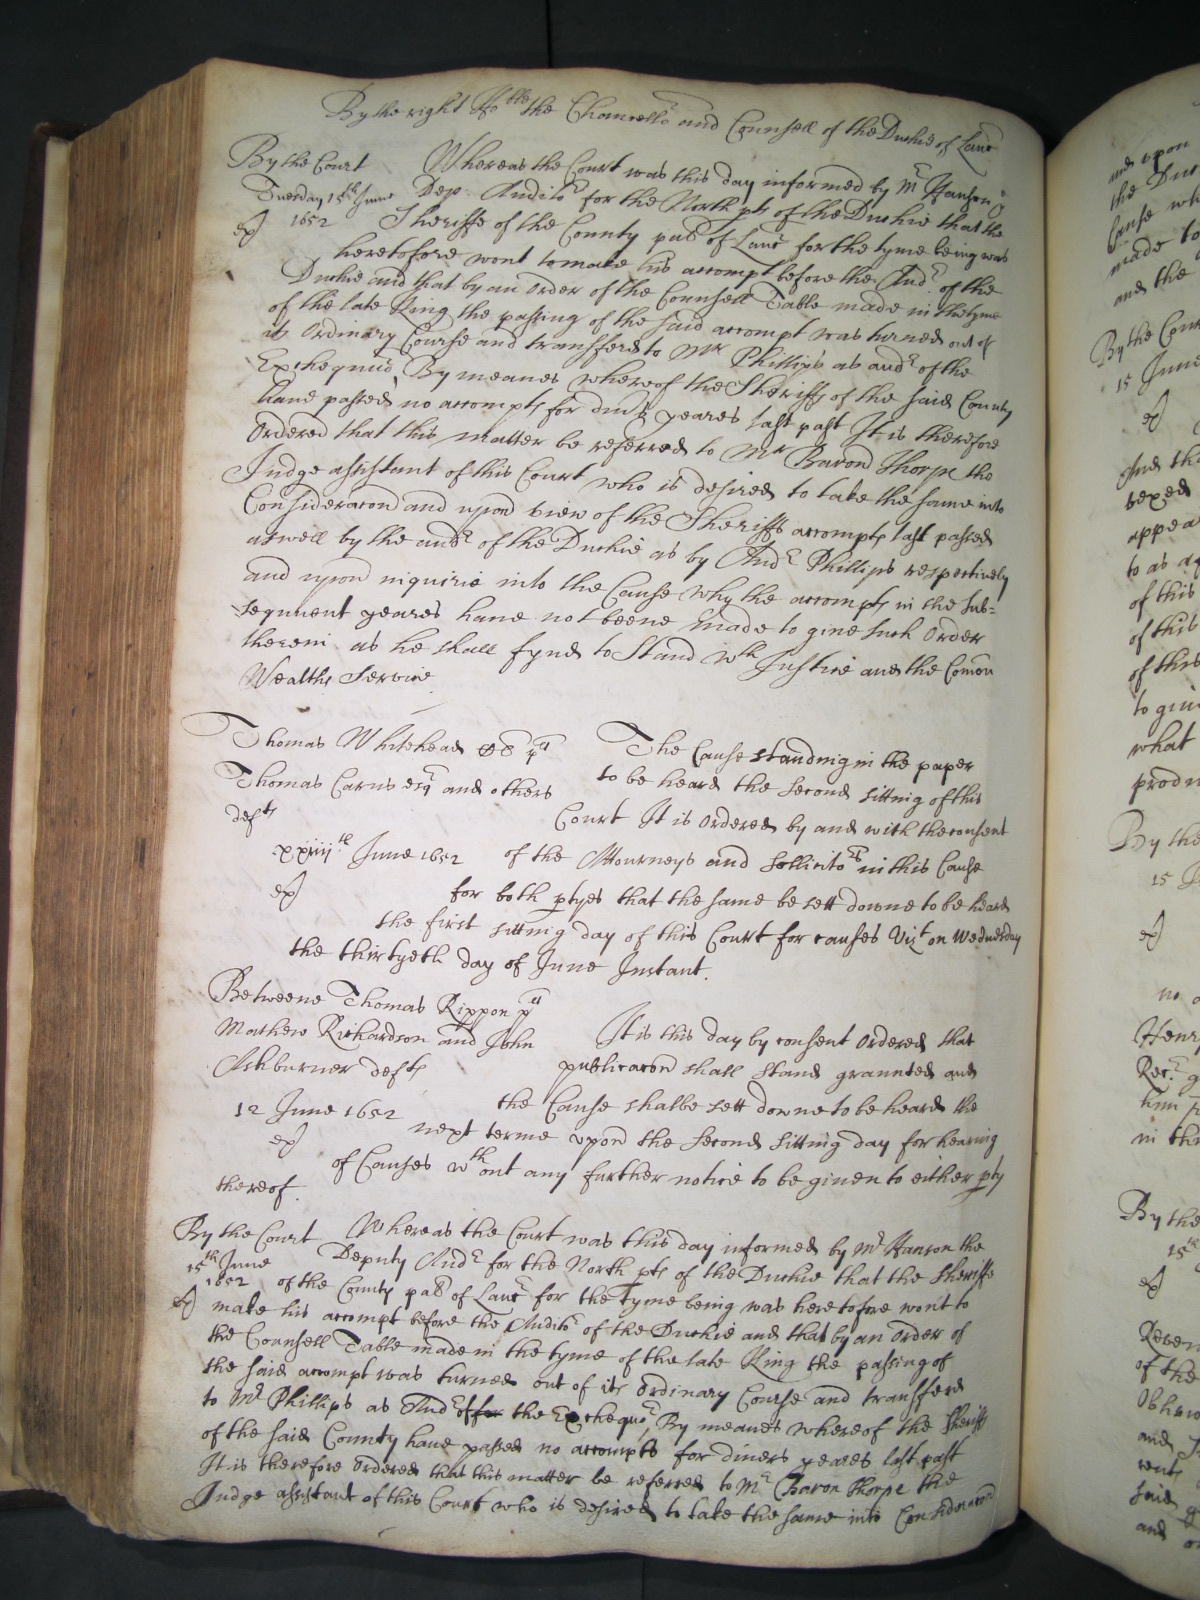 By the right Ho:ble the Chancellor and Counsell of the Duchie of Lanc
By the Court Whereas the Court was this day informed by Mr Hanson
Tuesday 15th June Dep Auditor for the North pts of the Duchie that the
1652 Sheriffe of the County palt of Lanc for the tyme being was
ex
heretofore wont to make his accompt before the Audr of the
Duchie and that by an Order of the Counsell Table made in the tyme
of the late King the passing of the said accompt was turned out of
its Ordinary Course and transferd to Mr Phillips as audr of the
Exchequer By meanes whereof the Sheriffs of the said County
have passed no accompts for divrs yeares last past It is therefore
Ordered that this matter be referred to Mr Baron Thorpe the
Judge assistant of this Court who is desired to take the same into
Consideracon and upon view of the Sheriffs accompts last passed
aswell by the audr of the Duchie as by Audr Phillips respectively
and upon inquirie into the Cause why the accompts in the sub=
sequent yeares have not beene made to give such Order
therein as he shall fynd to Stand wth Justice and the Comon
Wealths Service
Thomas Whitehead plt The Cause standing in the paper
Thomas Carus esqr and others to be heard the second sitting of this
defts Court It is Ordered by and with the consent
xxiiijth June 1652 of the Attourneys and sollicitors in this Cause
ex for both ptyes that the same be sett downe to be heard
the first sitting day of this Court for causes vizt on Wednesday
the thirtyeth day of June Instant.
Betweene Thomas Rippon plt
Mathew Richardson and John It is this day by consent Ordered that
Ashburner defts publicacon shall stand graunted and
12 June 1652 the Cause shalbe sett downe to be heard the
ex next terme upon the second sitting day for hearing
of Causes wthout any further notice to be given to either pty
thereof.
By the Court Whereas the Court was this day informed by Mr Hanson the
15th June Deputy Audr for the North pts of the Duchie that the Sheriffe
1652 of the County palt of Lanc for the tyme being was heretofore wont to
ex make his accompt before the Auditor of the Duchie and that by an Order of
the Counsell Table made in the tyme of the late King the passing of
the said accompt was turned out of its Ordinary Course and transferd
to Mr Phillips as Audr of the Exchequer, By meanes whereof the Sheriffs
of the said County have passed no accompts for divers yeares last past
It is therefore Ordered that this matter be referred to Mr Baron Thorpe the
Judge assistant of this Court who is desired to take the same into Consideracon
and upon
the Duc
Cause wh
made to
and the
By the Cour
15 June
ex
And th
vexed
appea
to as
of this
of this
of this
to giv
what
produ
By the
15
ex
no
Henr
Recr
him
in th
By the
15th
ex
Reven
of the
and
rent
said
and